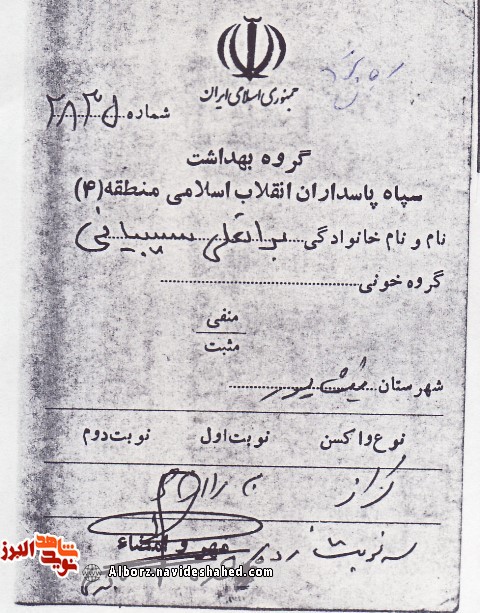 جمهوری اسلامی ایران
شماره ۲۸۳۵
گروه بهداشت
سپاه پاسداران انقلاب اسلامی منطقه (۴)
نام و نام خانوادگی براتعلی سیبیانی
گروه خونی
منفی
مثبت
شهرستان نیشابور
نوع واکسن نوبت اول نوبت دوم
کزاز
مهر و امضاء
سه نوبت
شاهد
نوید
البرز
Alborz.navideshahed.com